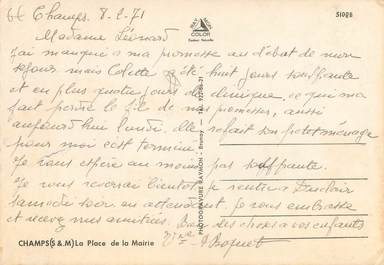 Champs. 8.2.71
RAYMON
COLOR
51008
Madame Léonard
J'ai manqué à ma promesse au début de mon
séjour mais Colette a été huit jours souffrante
et en plus quatre jours de clinique, ce qui m'a
fait perdre le fil de mes promesses, aussi
aujourd'hui lundi elle refait son petit ménage
pour moi c'est terminé
Je vous espère au moins pas souffrante.
Je vous reverrai bientôt, je rentre à
samedi soir en attendant je vous embrasse
et recevez mes amitiés. Bien des choses à vos enfants
PHOTOGRAVURE RAYMON
CHAMPS (S & M) La Place de la Mairie